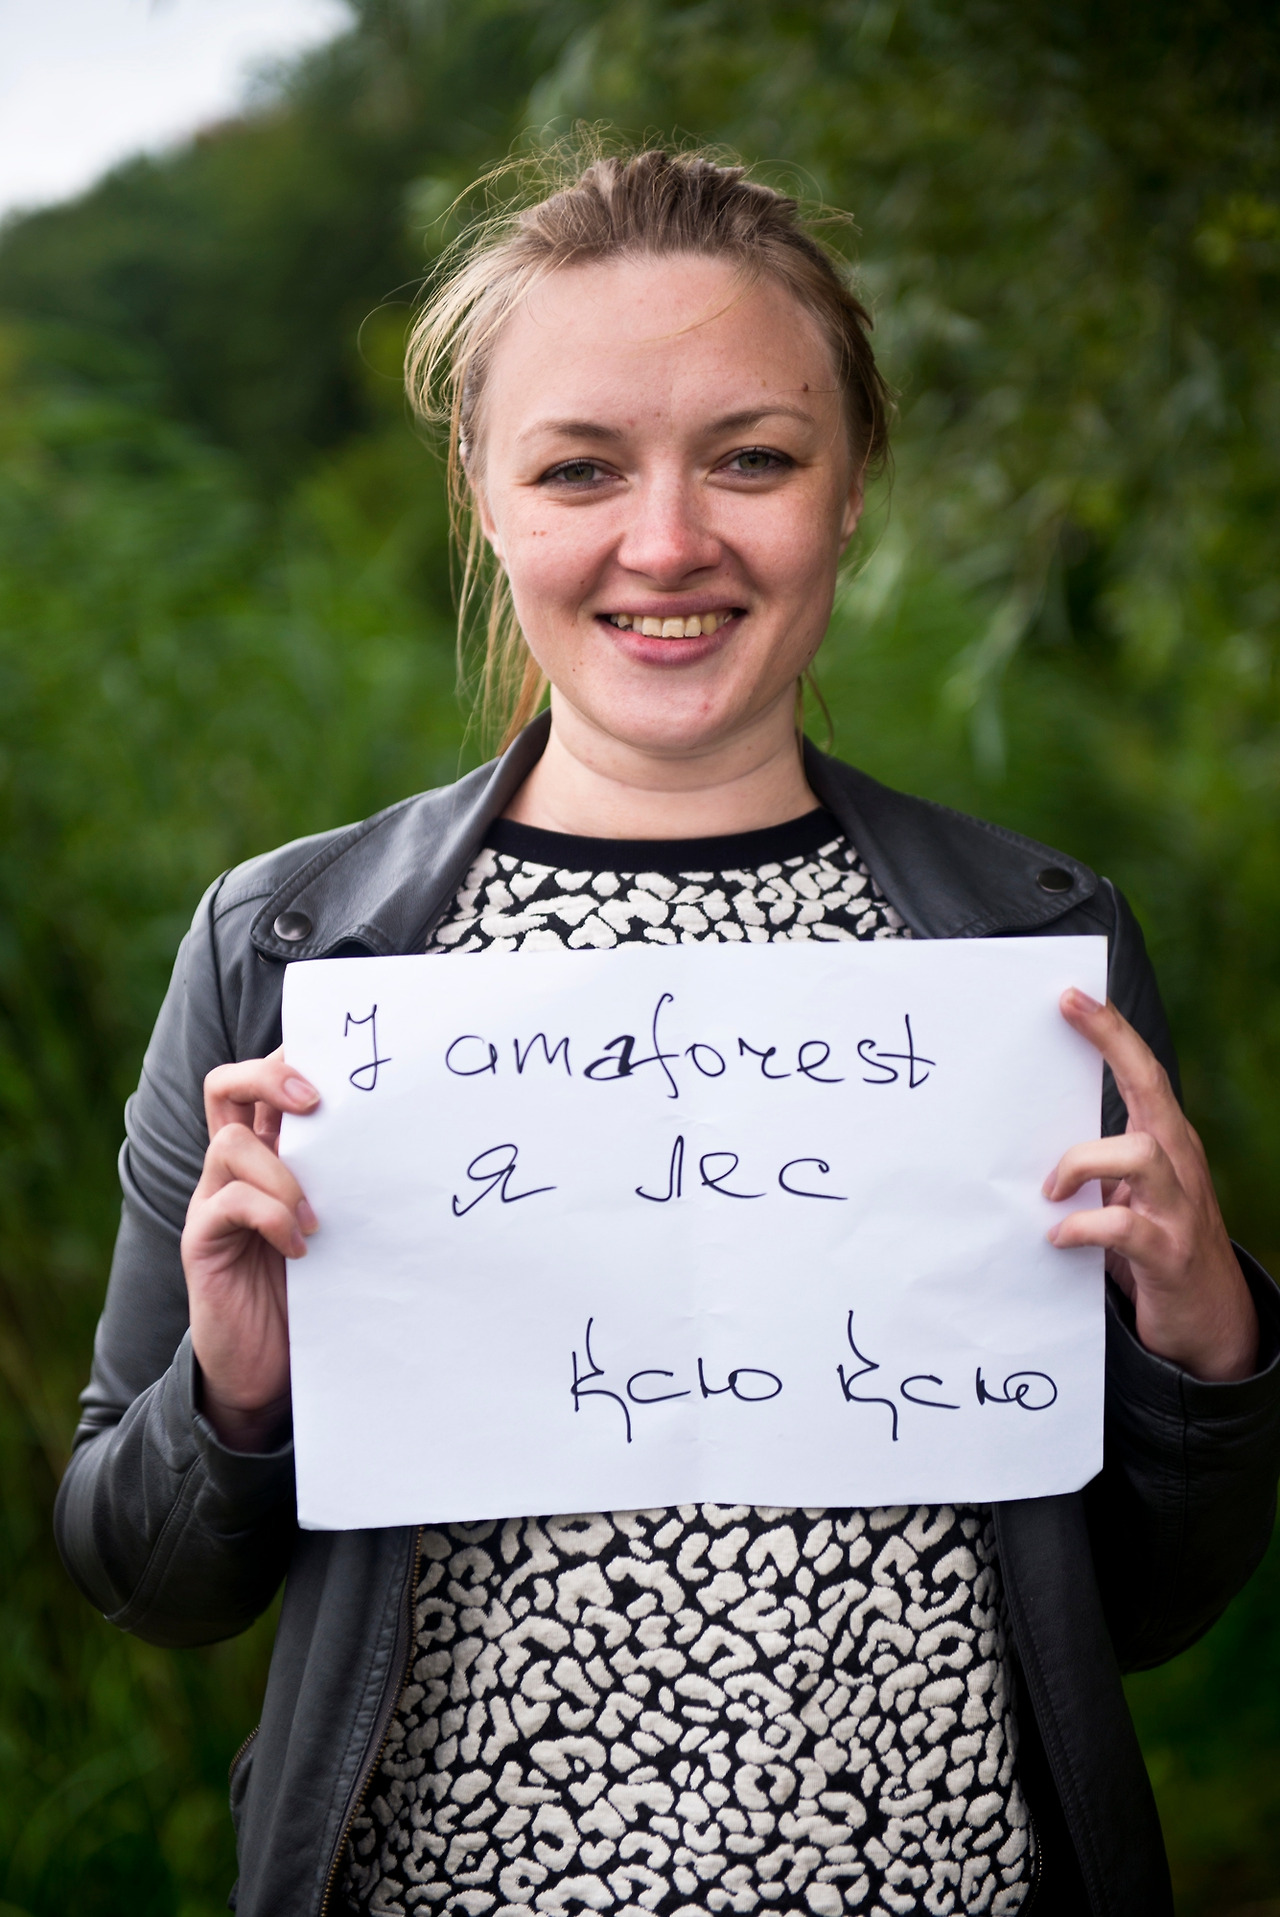 I am a forest
я лес
Ксю Ксю